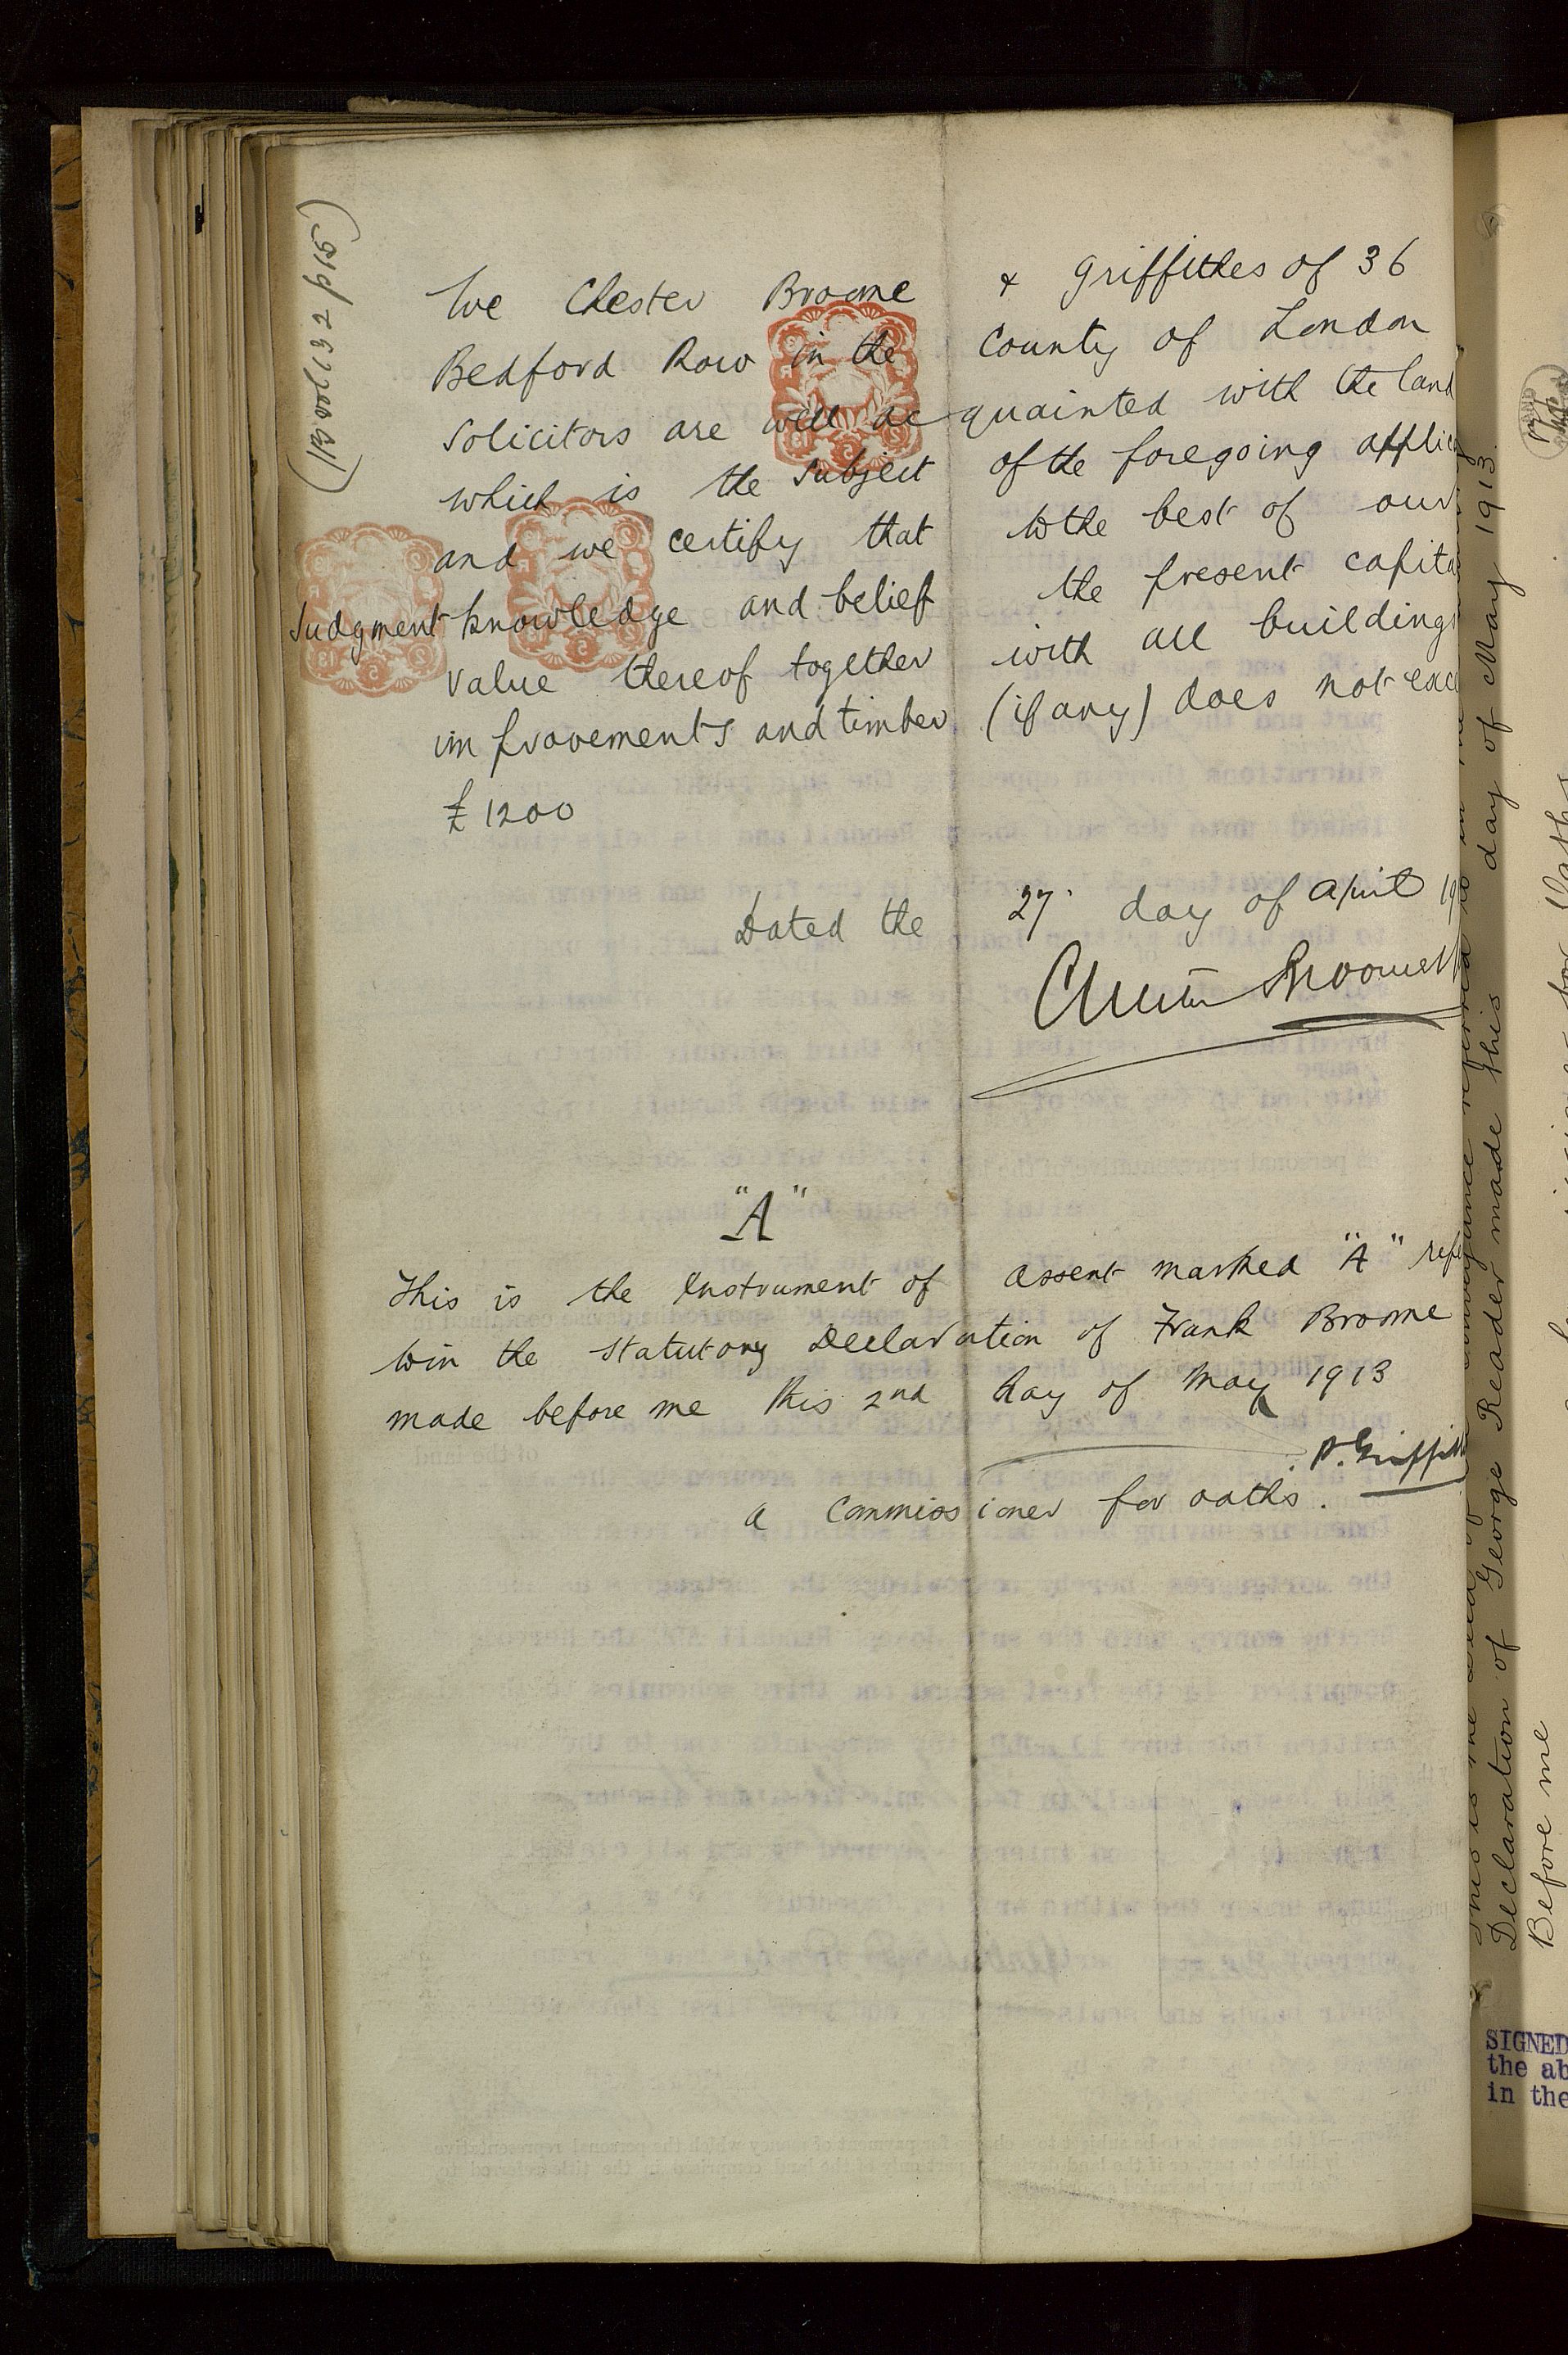 (1B vol 132 p 15)
We Chester Broome & Griffithes of 36
Bedford Row in the County of London
Solicitors are well acquainted with the land
which is the subject of the foregoing applic
and we certify that to the best of our
Judgment knowledge and belief the present capita
value thereof together with all buildings
improvements and timber (if any) does not exce
£1200
Dated the 27 day of April 19
Chester Broome
"A"
This is the Instrument of Assent marked "A" refe
to in the Statutory Declaration of Frank Broome
made before me this 2nd day of May 1913
P. Griffith
a Commissioner for oaths.
Declaration of George Reader made this day of May 1913.
Before me
SIGNED
the ab
in the